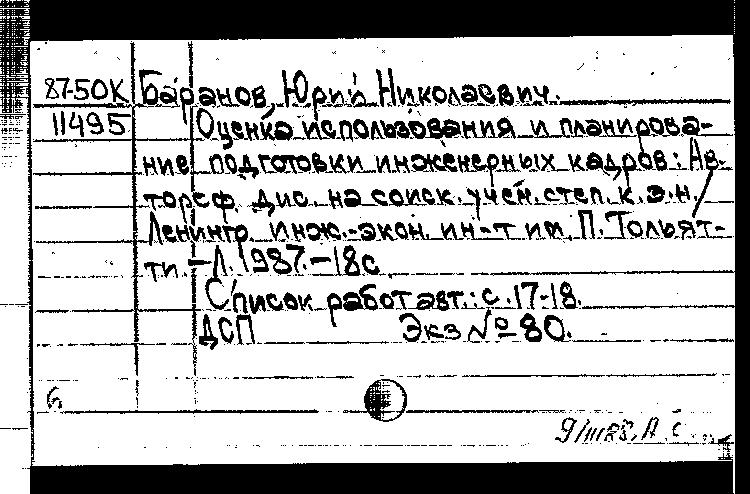 87-50К Баранов, Юрий Николаевич.
11495 Оценка использования и планирова-
ние подготовки инженерных кадров: Ав-
тореф. дис. на соиск. учен. степ. к.э.н. /
Ленингр. инж.-экон. ин-т им. П. Тольят-
ти. - Л. 1987. - 18 с.
Список работ авт.: с. 17-18.
ДСП Экз № 80.
б
9/III 88.